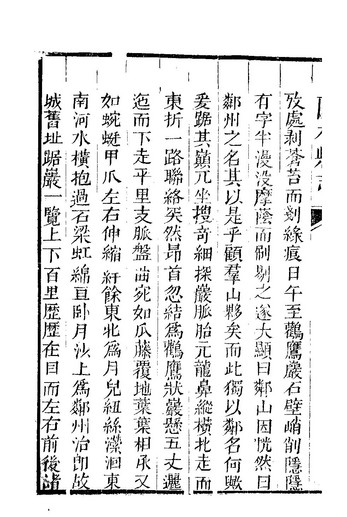 攷處剥蒼苔而剔綠痕日午至鸛鷹巖石壁峭削隱隱
有字半漫没摩蔭而剞剔之遂大顯曰鄰山因恍然曰
鄰州之名其以是乎顧羣山夥矣而此獨以鄰名何歟
爰踞其巔亢坐搜奇細探巖脈胎元龍鼻縱橫北走而
東折一路聯絡突然昂首忽結為鸛鷹狀巖懸五丈邐
迤而下走平里支脈盤曲宛如瓜藤覆地葉葉相承又
如蜿蜒甲爪左右伸縮紆餘東北為月兒紐絲濚洄東
南河水橫抱過石梁虹綿亘卧月沙上為鄰州治即故
城舊址踞巖一覽上下百里歷歷在目而左右前後諸